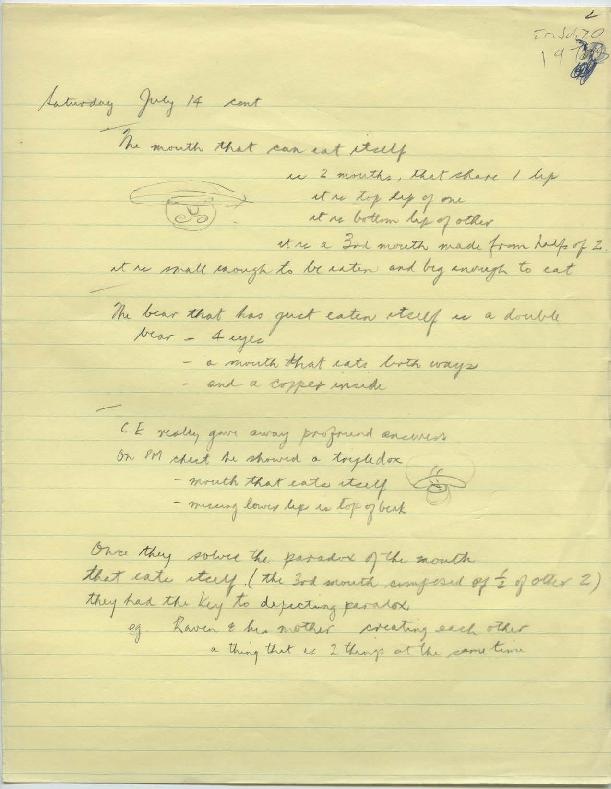 Saturday July 14 cont
The mouth that can eat itself
is 2 mouths, that share 1 lip
it is top lip of one
it is bottom lip of other
it is a 3rd mouth made from half of 2.
it is small enough to be eaten and big enough to eat
The bear that has just eaten itself is a double
bear - 4 eyes
- a mouth that eats both ways
- and a copper inside
C E really gave away profound answers
On PM chest he showed a tripledox
- mouth that eats itself
- missing lower lip is top of beak
Once they solve the paradox of the mouth
that eats itself, (the 3rd mouth composed of ½ of other 2)
they had the key to depicting paradox
eg Raven & his mother creating each other
a thing that is 2 things at the same time